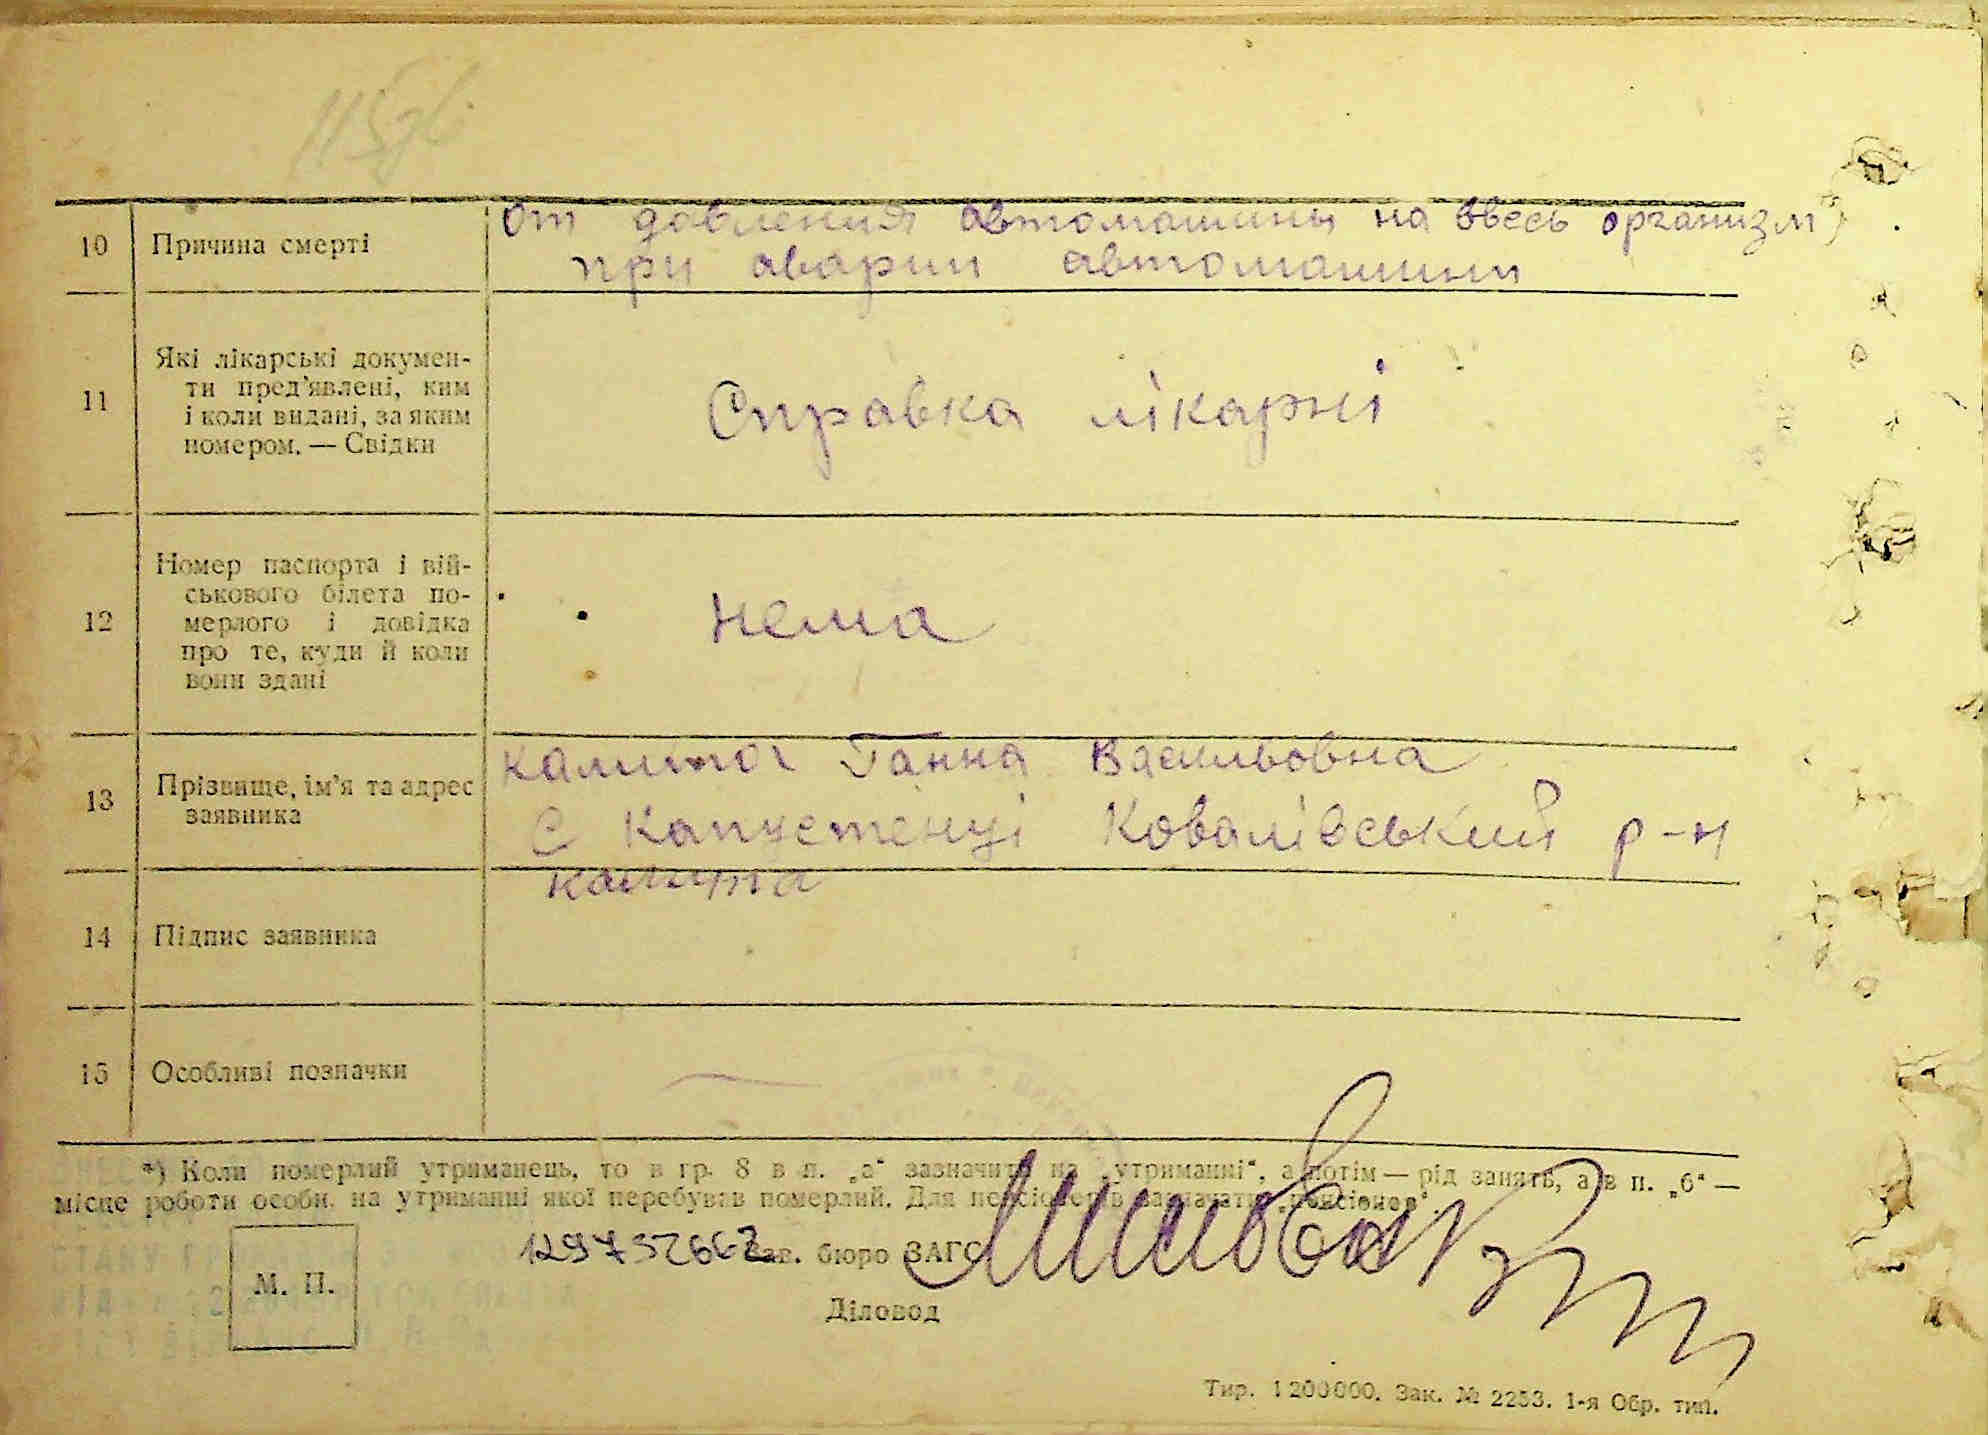 115зв
10 Причина смерті От давления автомашины на ввесь организм
при аварии автомашини
11 Які лікарські докумен-
ти пред'явлені, ким
і коли видані, за яким
номером. — Свідки
Справка лікарні
12 Номер паспорта і вій-
ськового білета по-
мерлого і довідка
про те, куди й коли
вони здані
нема
13 Прізвище, ім'я та адрес
заявника
Калита Ганна Васильовна
С Капустенці Ковалівський р-н
14 Підпис заявника
калита
15 Особливі позначки
*) Коли померлий утриманець, то в гр. 8 в п. „а“ зазначити на „утриманні“, а потім — рід занять, а в п. „б“ —
місце роботи особи, на утриманні якої перебував померлий. Для пенсіонерів зазначати „пенсіонер“.
Зав. бюро ЗАГС
М. П.
Діловод
Тир. 1 200 000. Зак. № 2253. 1-я Обр. тип.